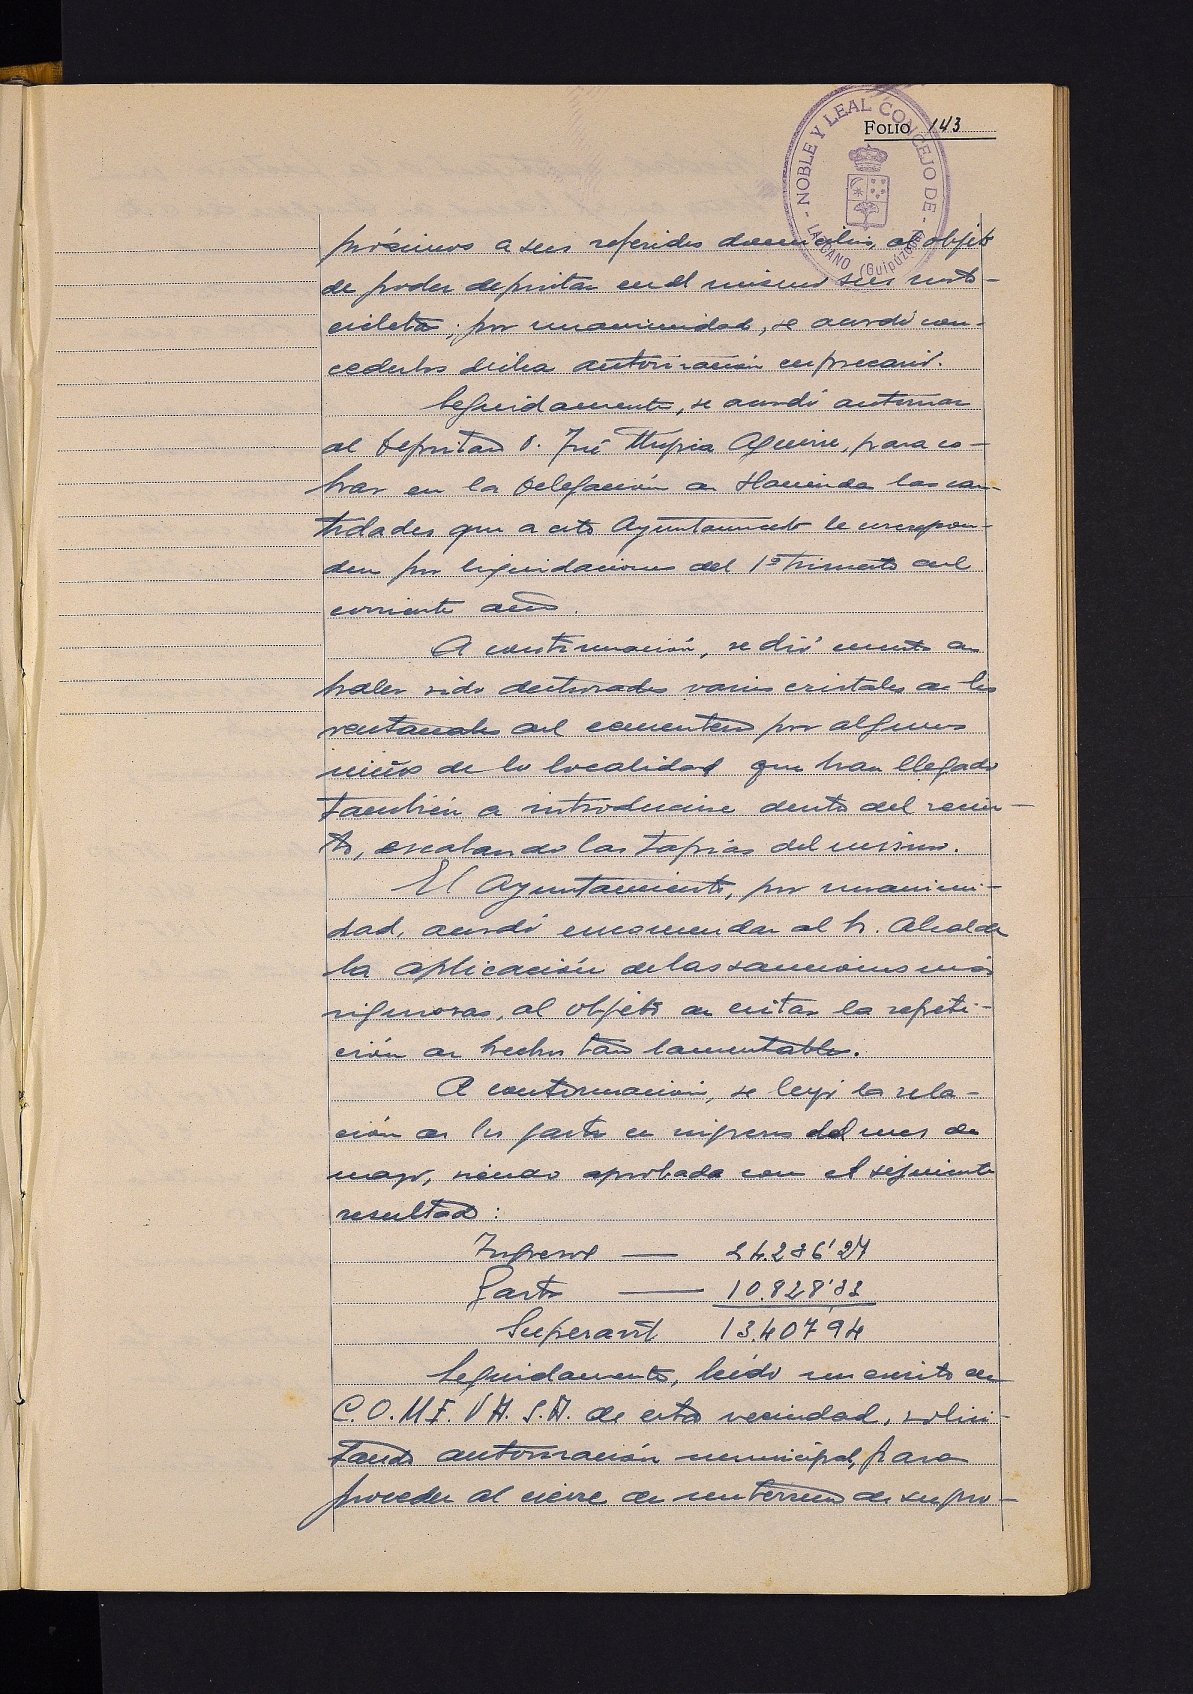 FOLIO 143
NOBLE Y LEAL CONCEJO DE LAZCANO (Guipúzcoa)
próximos a sus referidos domicilios, al objeto
de poder depositar en el mismo sus moto-
cicletas; por unanimidad, se acordó con-
cederlos dicha autorización en precario.
Seguidamente, se acordó autorizar
al Depositario D. José Aguirre, para co-
brar en la Delegación de Hacienda las can-
tidades que a este Ayuntamiento le correspon-
den por liquidaciones del 1º trimestre del
corriente año.
A continuación, se dió cuenta de
haber sido destrozados varios cristales de los
ventanales del cementerio por algunos
niños de la localidad que han llegado
también a introducirse dentro del recin-
to, escalando las tapias del mismo.
El Ayuntamiento, por unanimi-
dad, acordó encomendar al Sr. Alcalde
la aplicación de las sanciones más
rigurosas, al objeto de evitar la repeti-
ción de hechos tan lamentables.
A continuación, se leyó la rela-
ción de los gastos e ingresos del mes de
mayo, siendo aprobada con el siguiente
resultado:
Ingresos — 24.236'27
Gastos — 10.828'33
Superavit 13.407'94
Seguidamente, leído un escrito de
C.O.M.E.V.A. S.A. de esta vecindad, solici-
tando autorización municipal, para
proceder al cierre de un terreno de su pro-